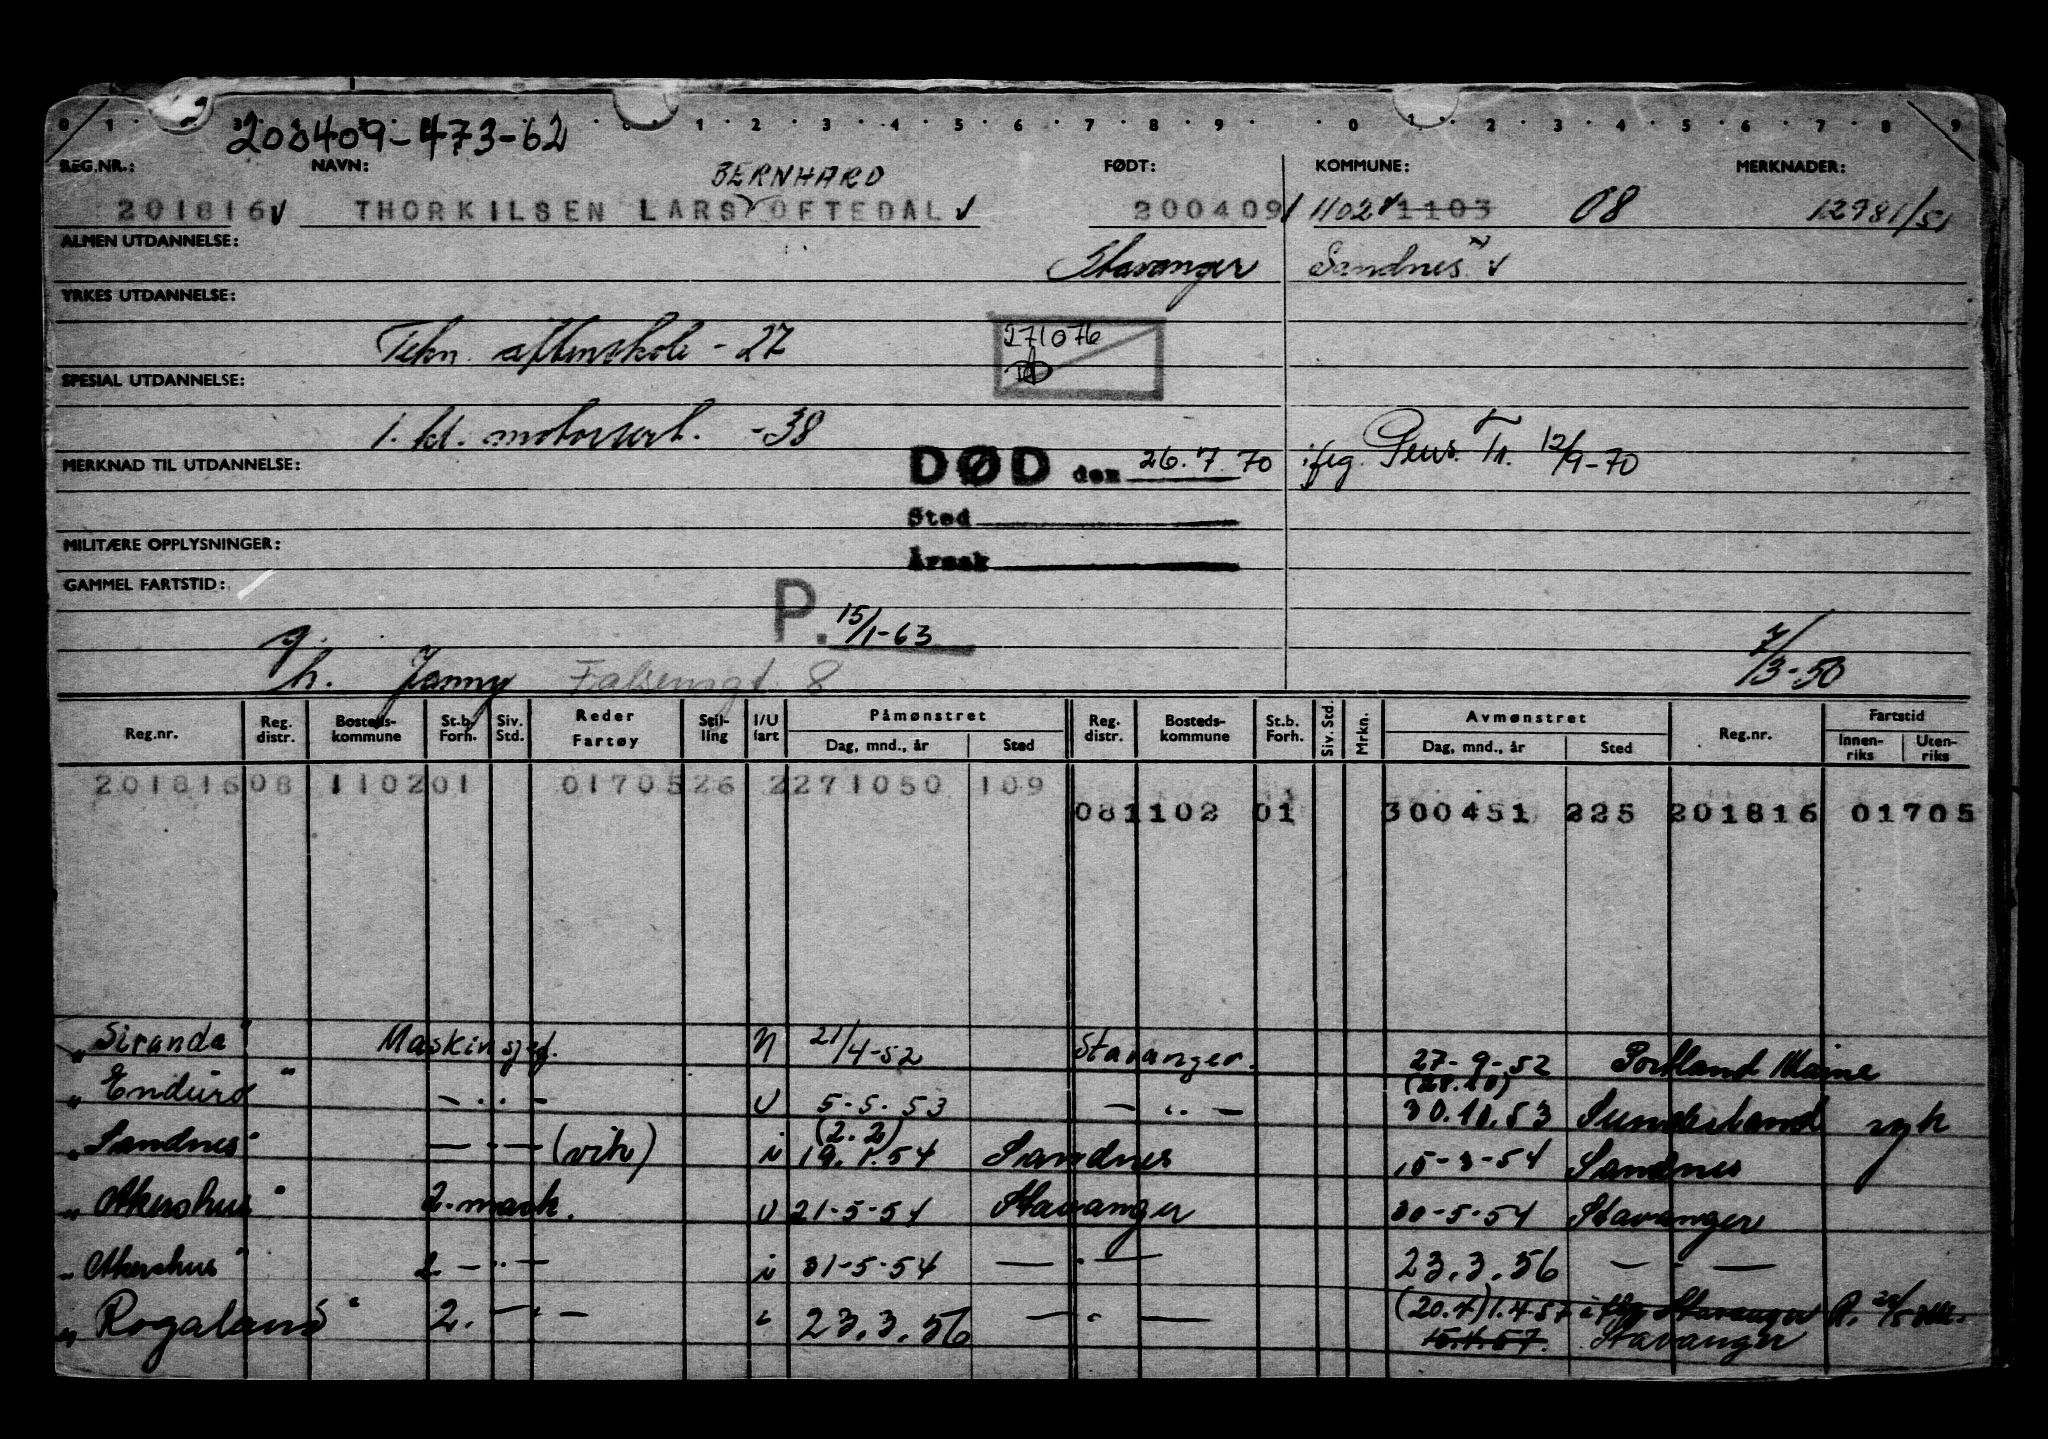 0 1 2 3 4 5 6 7 8 9 0 1 2 3 4 5 6 7 8 9
200409-473-62
REG.NR.: NAVN: BERNHARD FØDT: KOMMUNE: MERKNADER:
201816 THORKILSEN LARS OFTEDAL 200409 1102 1103 08 12981/51
ALMEN UTDANNELSE: Stavanger Sandnes
YRKES UTDANNELSE:
Tekn. aftenskole - 27 271076
SPESIAL UTDANNELSE:
1. kl. motorsert. -38
MERKNAD TIL UTDANNELSE: DØD den 26.7.70 iføg. Pens. Tr. 12/9-70
Sted
MILITÆRE OPPLYSNINGER: Årsak
GAMMEL FARTSTID:
P. 15/1-63
g/h. Jenny Falsensgt. 8 7/3-50
Reg.nr. Reg. distr. Bosteds-kommune St.b. Forh. Siv. Std. Reder Fartøy Stil-ling I/U fart Påmønstret Dag, mnd., år Sted Reg. distr. Bosteds-kommune St.b. Forh. Siv. Std. Mrkn. Avmønstret Dag, mnd., år Sted Reg.nr. Fartstid Innen-riks Uten-riks
201816 08 1102 01 01705 26 2 271050 109
08 1102 01 300451 225 201816 01705
"Siranda" Maskinsjef. N 21/4-52 Stavanger. 27-9-52 Portland Maine
"Enduro" - .. - U 5-5-53 - .. - (28.10) 30.10.53 Sunderland syk
"Sandnes" - .. - (vik) i (2.2) 19.1.54 Sandnes 15-3-54 Sandnes
"Akershus" 2. mask. U 21-5-54 Stavanger 30-5-54 Stavanger
"Akershus" 2 - .. - i 31-5-54 - .. - 23.3.56 - .. -
"Rogaland" 2. - .. - i 23.3.56 - .. - (20.4) 1.4.57 Stavanger
15.4.57. Stavanger